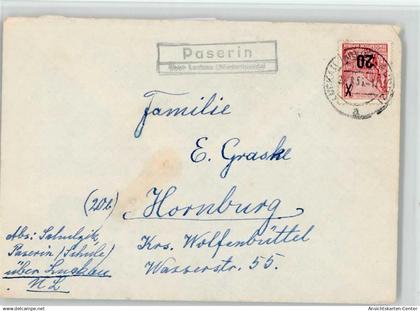 Paserin
über Luckau (Niederlausitz)
20
X
LUCKAU
a
Familie
E. Graske
(20b)
Hornburg
Krs. Wolfenbüttel
Wasserstr. 55.
Abs: Schulzik,
Paserin (Schule)
über Luckau
N L
www.delcampe.net
Ansichtskarten-Center